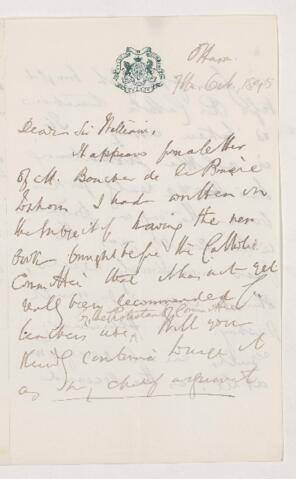 Ottawa
7th Oct. 1895
Dear Sir William,
It appears from a letter
of M. Boucher de la Bruère
to whom I had written on
the subject of having the new
book brought before the Catholic
Committee that it has not yet
really been recommended for
teachers use, by the Protestant Committee
Will you
kindly continue to urge it
as the chief argument